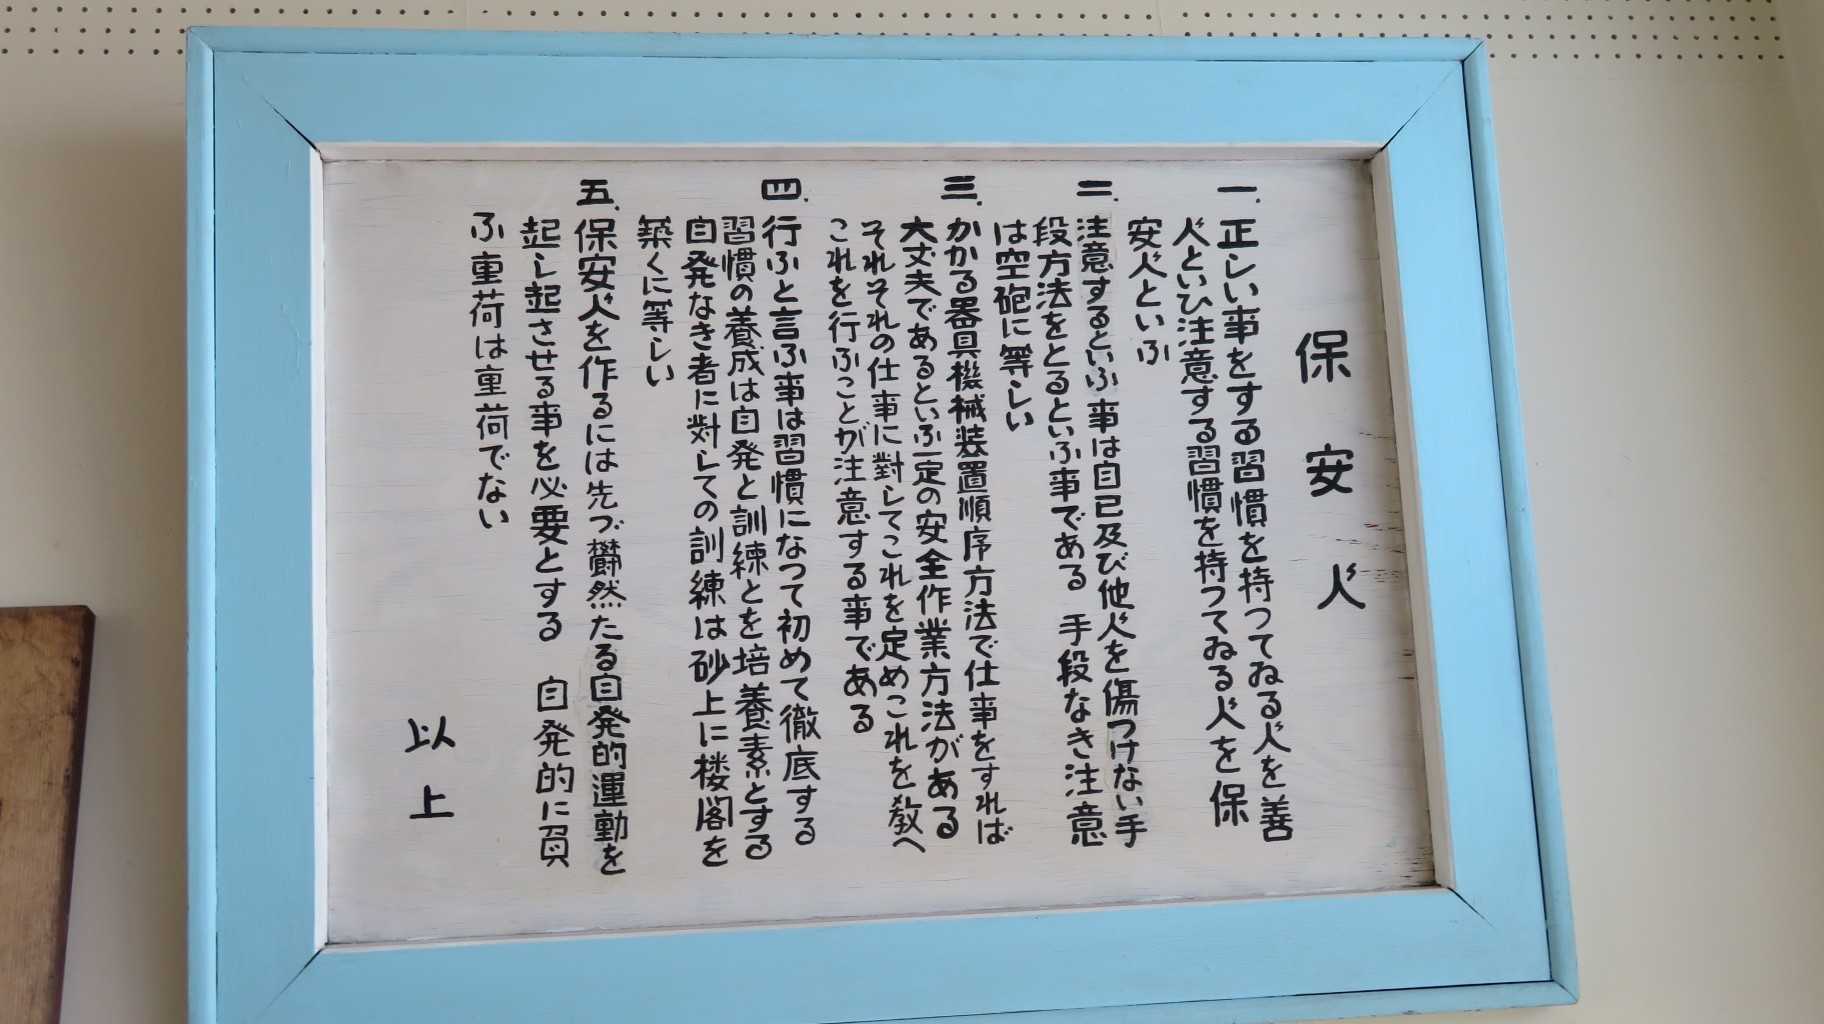 保安人
一.正しい事をする習慣を持つてゐる人を善
人といひ注意する習慣を持つてゐる人を保
安人といふ
二.注意するといふ事は自己及び他人を傷つけない手
段方法をとるといふ事である 手段なき注意
は空砲に等しい
三.かかる器具機械装置順序方法で仕事をすれば
大丈夫であるといふ一定の安全作業方法がある
それそれの仕事に對してこれを定めこれを敎へ
これを行ふことが注意する事である
四.行ふと言ふ事は習慣になつて初めて徹底する
習慣の養成は自発と訓練とを培養素とする
自発なき者に対しての訓練は砂上に楼閣を
築くに等しい
五.保安人を作るには先づ欝然たる自発的運動を
起し起させる事を必要とする 自発的に負
ふ重荷は重荷でない
以上